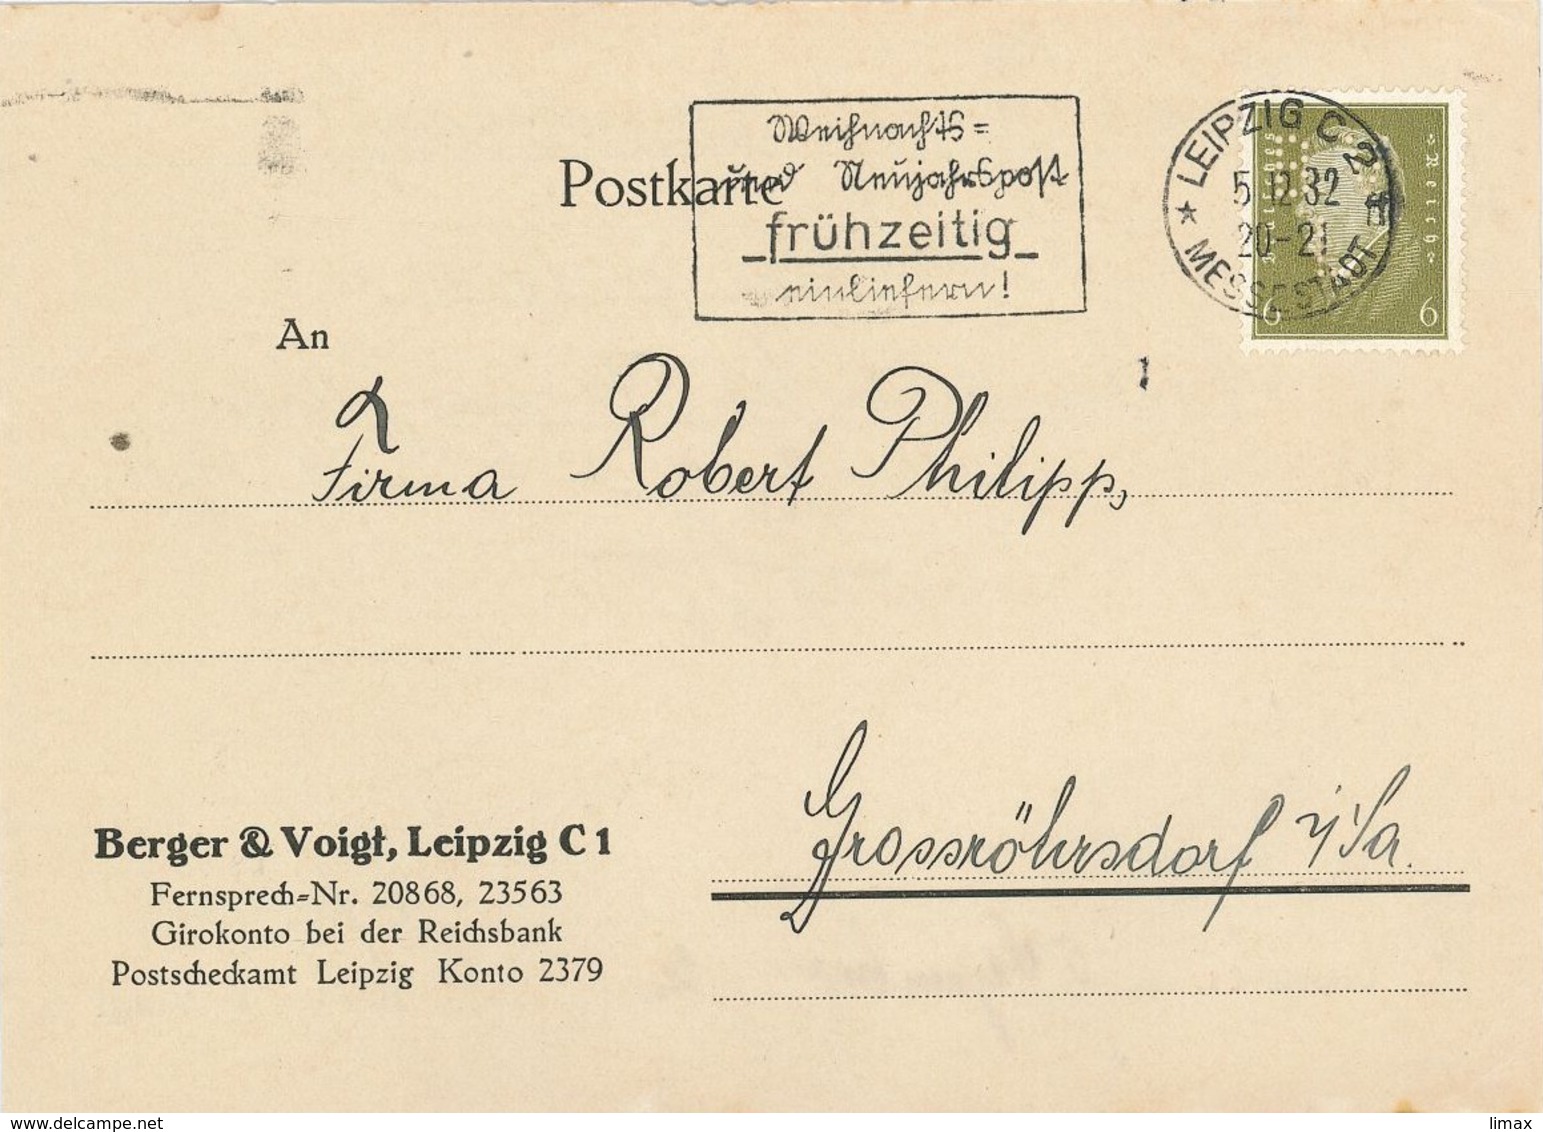 Weihnachts=
und Neujahrspost
frühzeitig
einliefern!
LEIPZIG C 2
5.12.32
20-21
MESSESTADT
Deutsches Reich
6 6
Postkarte
An
Firma Robert Philipp,
Grossröhrsdorf i/Sa.
Berger & Voigt, Leipzig C 1
Fernsprech=Nr. 20868, 23563
Girokonto bei der Reichsbank
Postscheckamt Leipzig Konto 2379
www.delcampe.net
limax